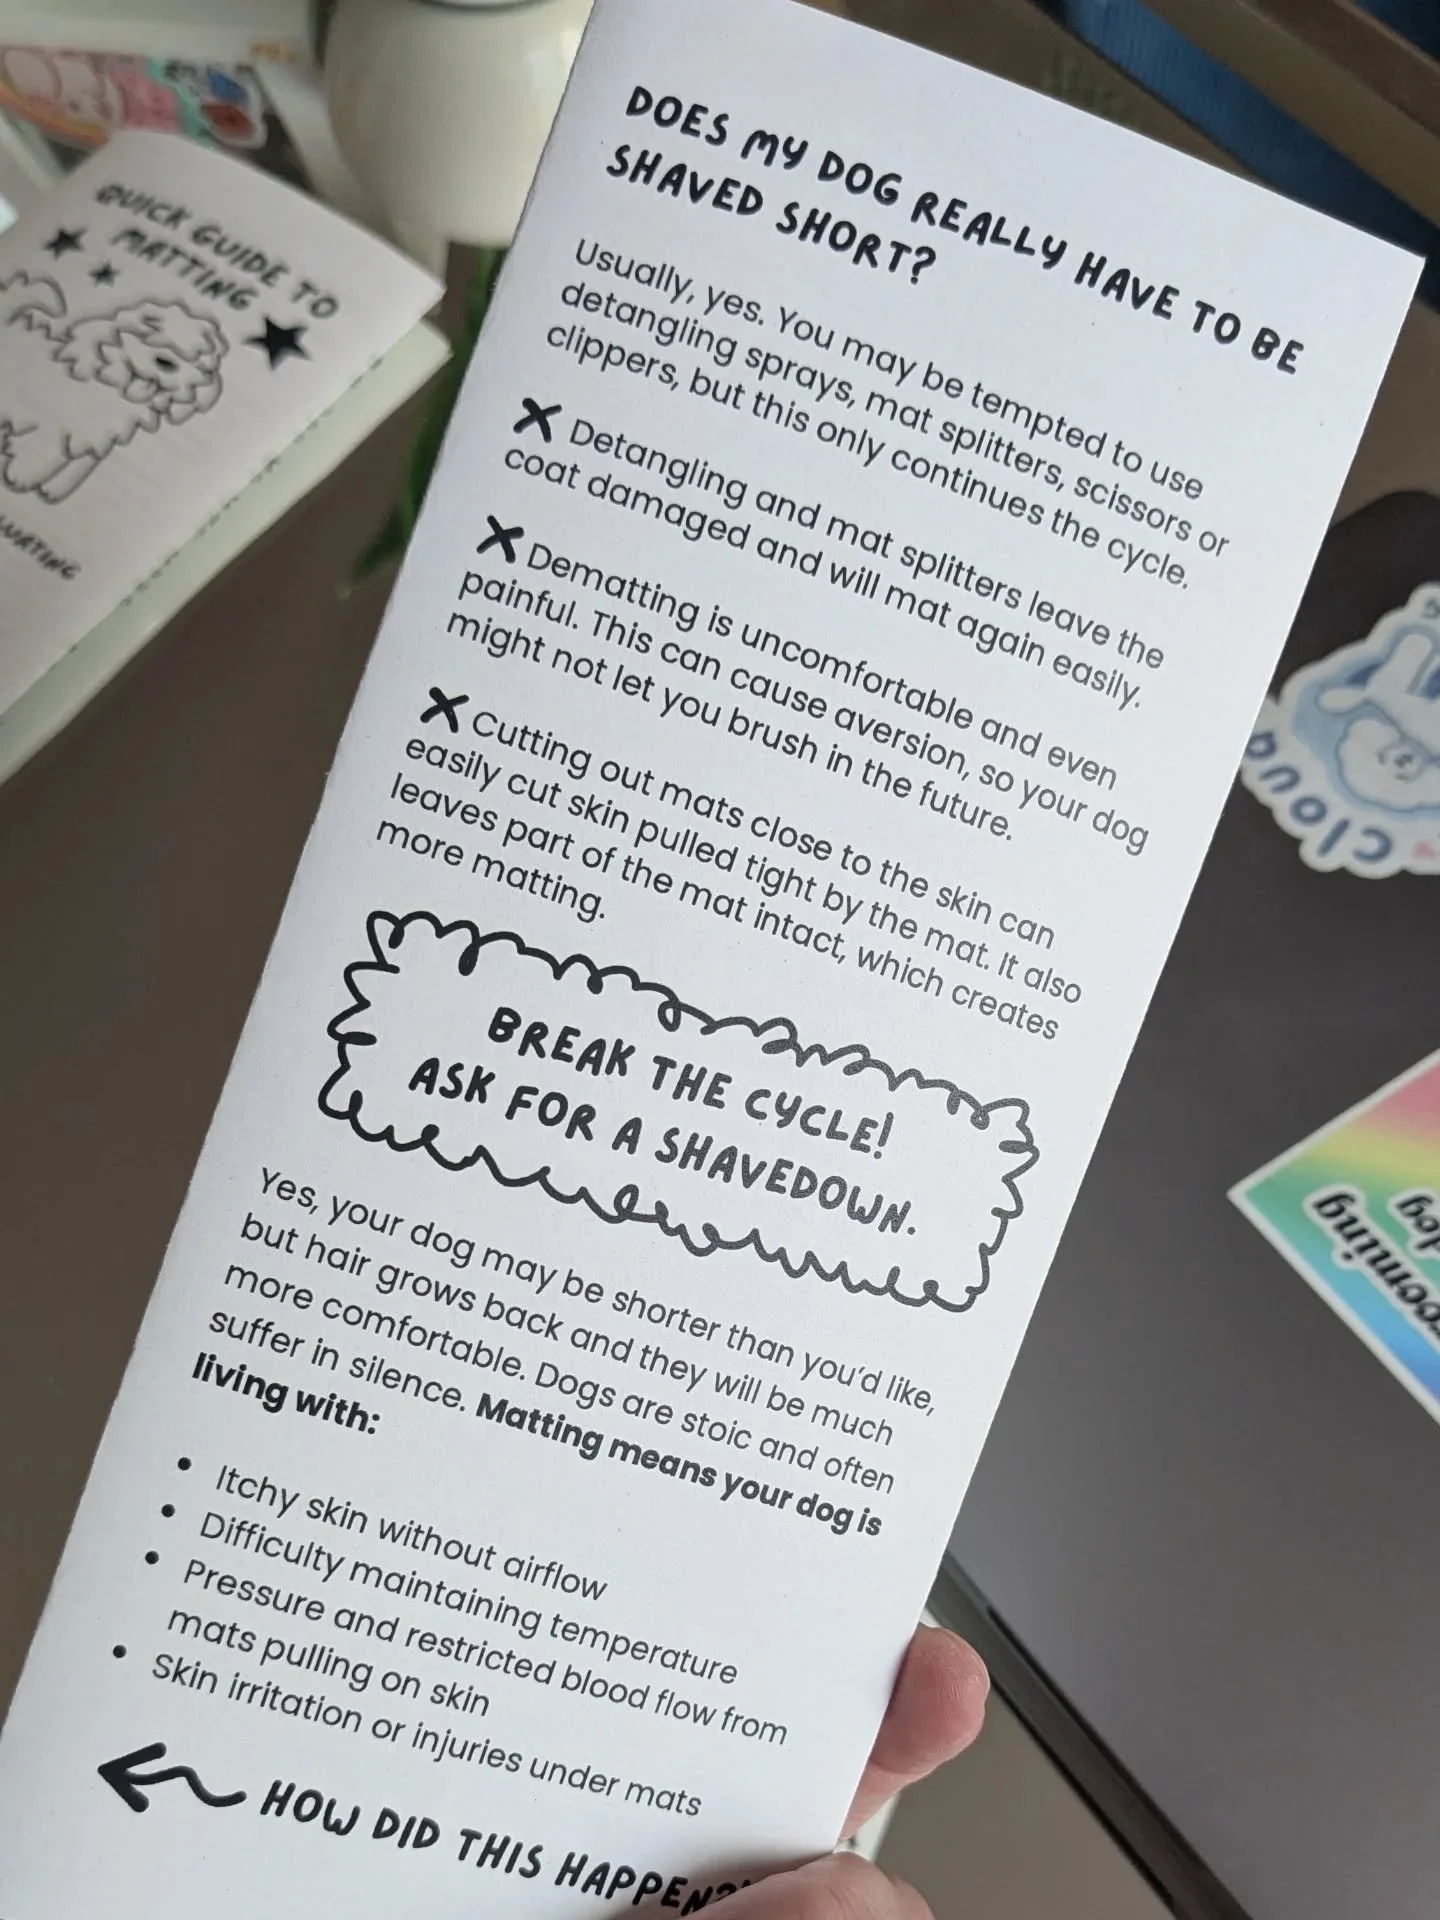 DOES MY DOG REALLY HAVE TO BE
SHAVED SHORT?
Usually, yes. You may be tempted to use
detangling sprays, mat splitters, scissors or
clippers, but this only continues the cycle.
Detangling and mat splitters leave the
coat damaged and will mat again easily.
Dematting is uncomfortable and even
painful. This can cause aversion, so your dog
might not let you brush in the future.
Cutting out mats close to the skin can
easily cut skin pulled tight by the mat. It also
leaves part of the mat intact, which creates
more matting.
BREAK THE CYCLE!
ASK FOR A SHAVEDOWN.
Yes, your dog may be shorter than you'd like,
but hair grows back and they will be much
more comfortable. Dogs are stoic and often
suffer in silence. Matting means your dog is
living with:
• Itchy skin without airflow
• Difficulty maintaining temperature
• Pressure and restricted blood flow from
mats pulling on skin
• Skin irritation or injuries under mats
HOW DID THIS HAPPEN?
QUICK GUIDE TO
MATTING
cloud
dog